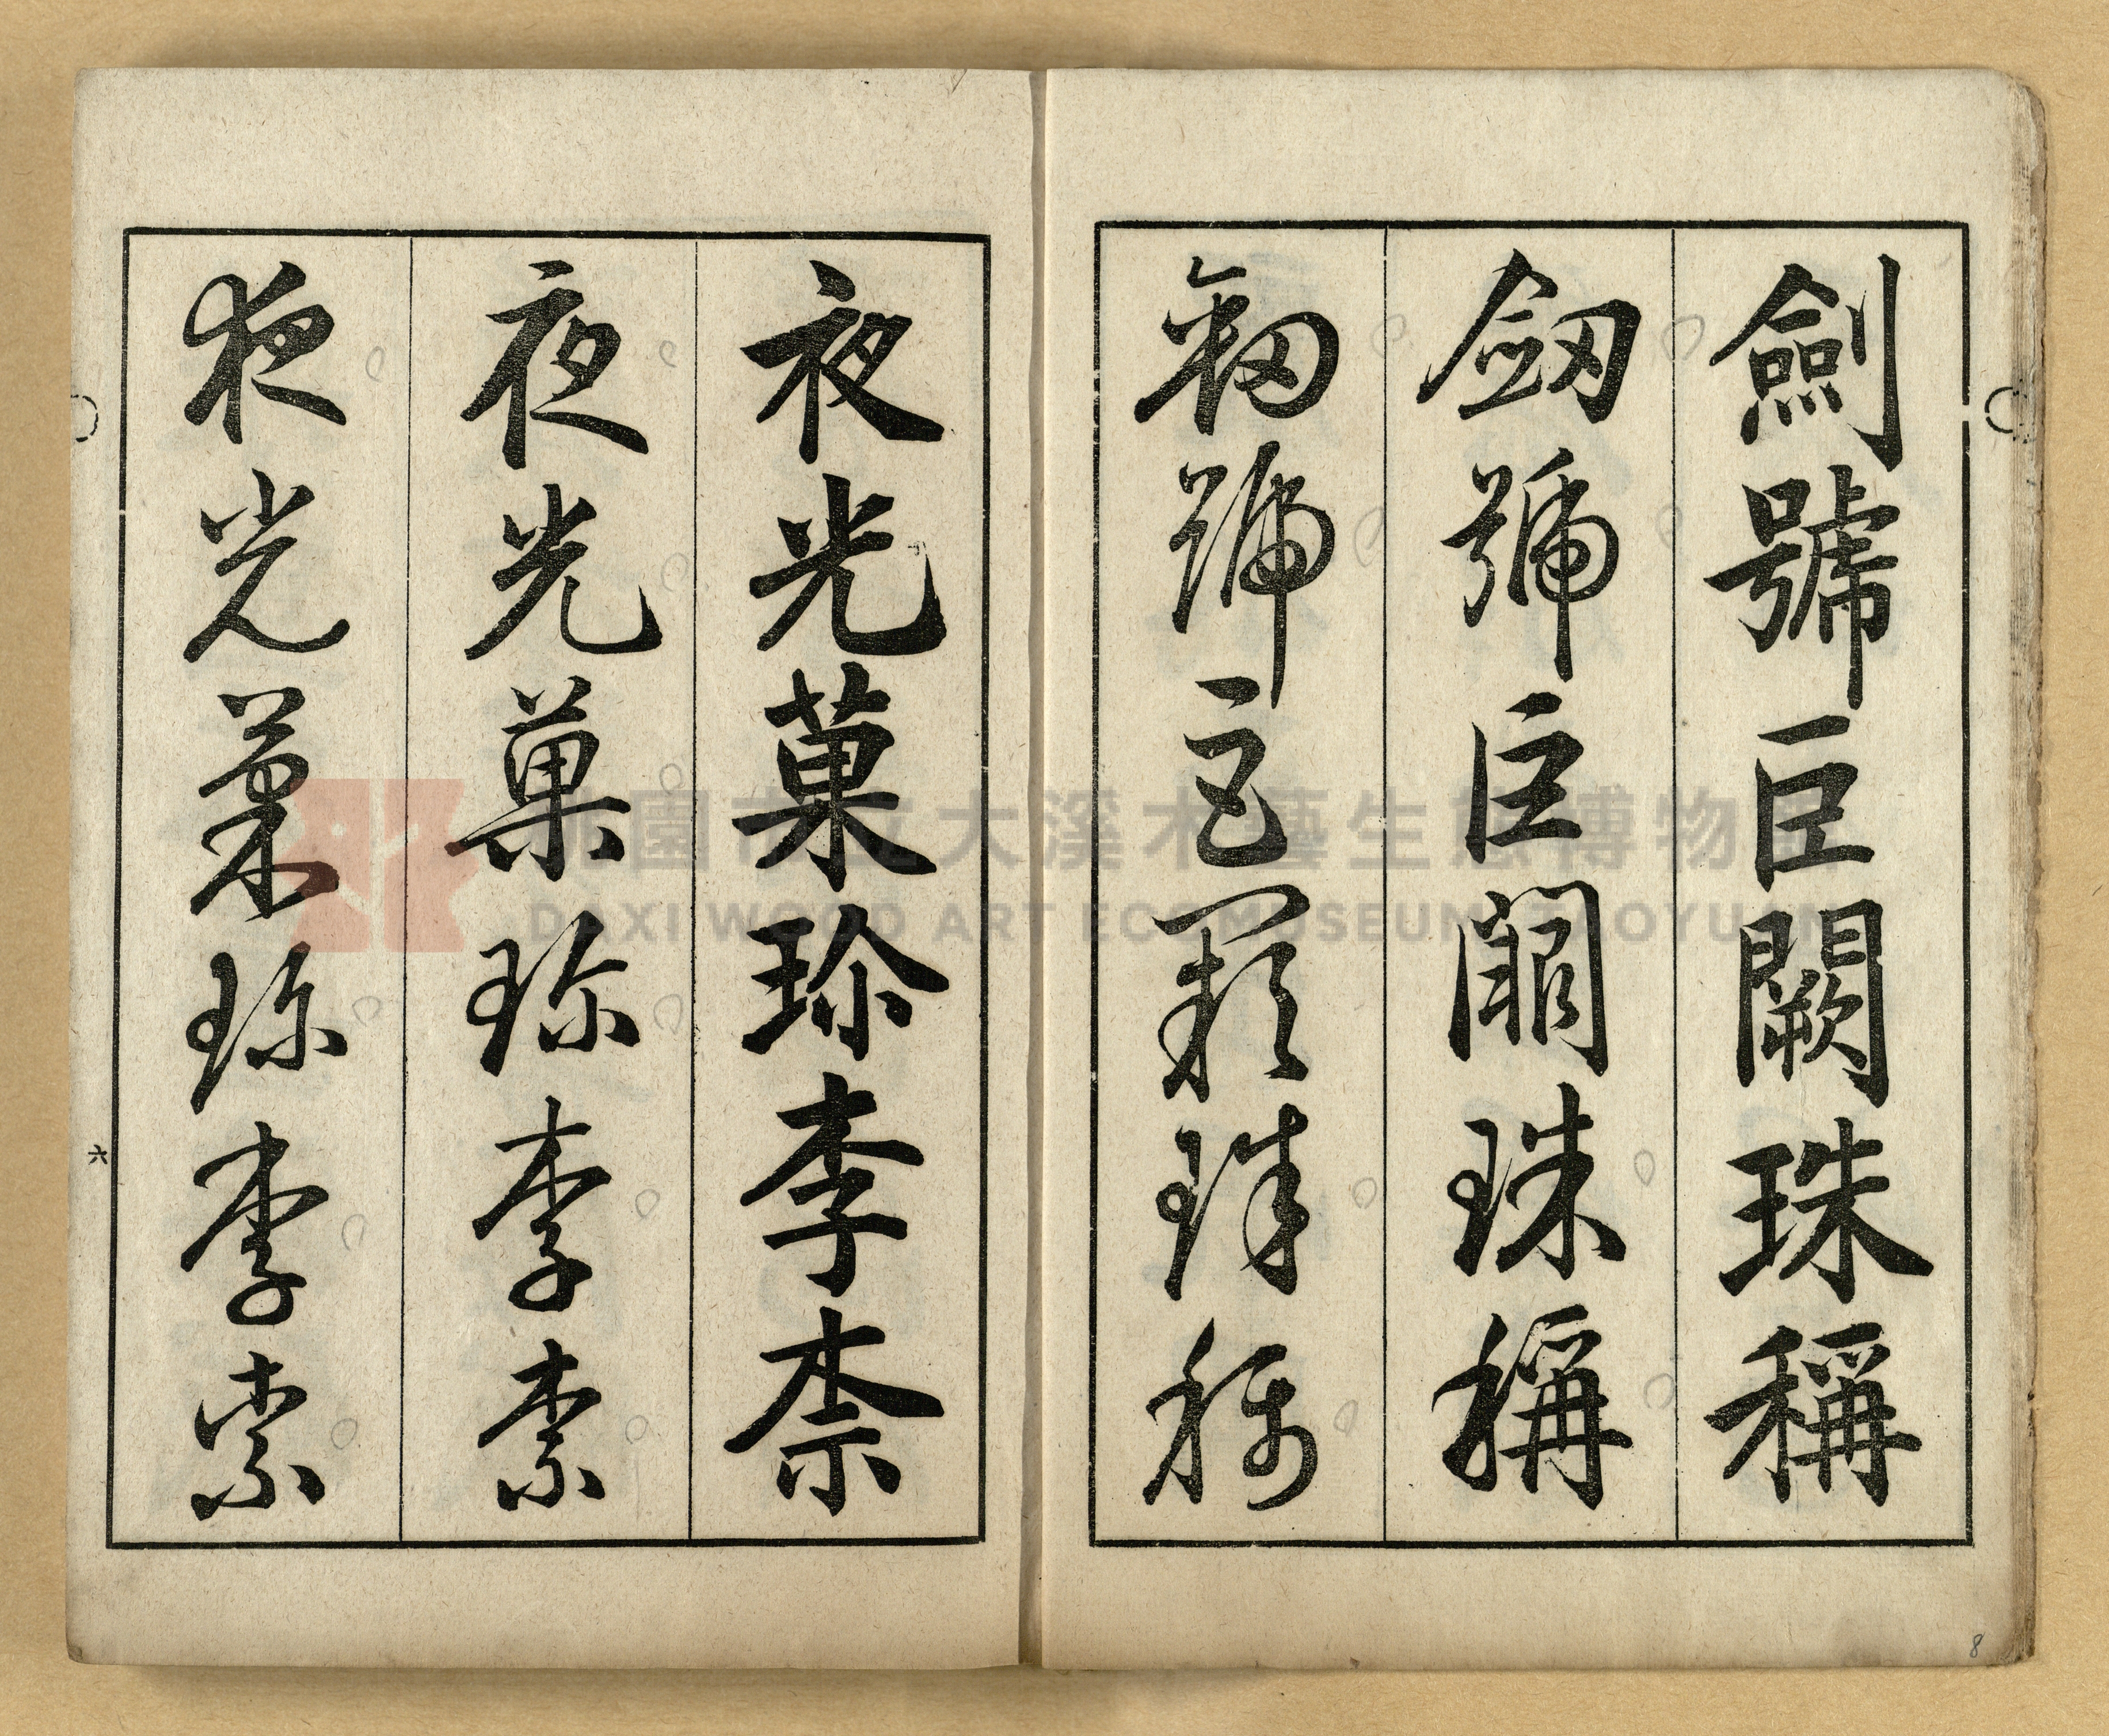 劍號巨闕珠稱
劒號巨闕珠稱
劒號巨闕珠稱
夜光菓珎李柰
夜光菓珎李柰
夜光菓珎李柰
六
8
桃園市立大溪木藝生態博物館
DAXI WOOD ART ECOMUSEUM TAOYUAN